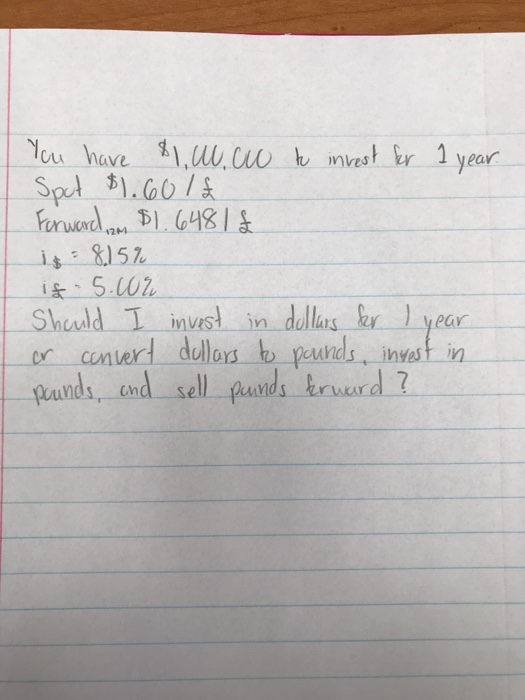 You have $1,000,000 to invest for 1 year
Spot $1.60/£
Forward 12M $1.648/£
i$ = 8.15%
i£ = 5.00%
Should I invest in dollars for 1 year
or convert dollars to pounds, invest in
pounds, and sell pounds forward?